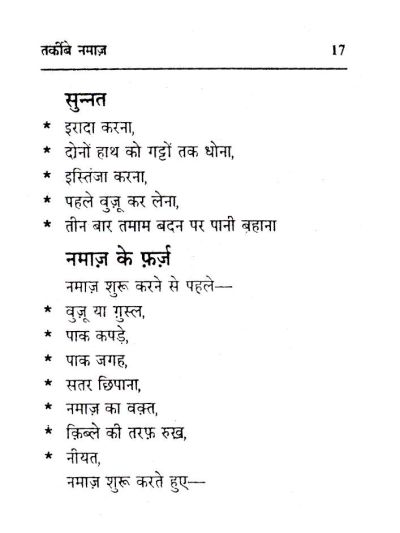 तर्कीबे नमाज़ 17
सुन्नत
* इरादा करना,
* दोनों हाथ को गट्टों तक धोना,
* इस्तिंजा करना,
* पहले वुज़ू कर लेना,
* तीन बार तमाम बदन पर पानी बहाना
नमाज़ के फ़र्ज़
नमाज़ शुरू करने से पहले—
* वुज़ू या ग़ुस्ल,
* पाक कपड़े,
* पाक जगह,
* सतर छिपाना,
* नमाज़ का वक़्त,
* क़िब्ले की तरफ़ रुख़,
* नीयत,
नमाज़ शुरू करते हुए—